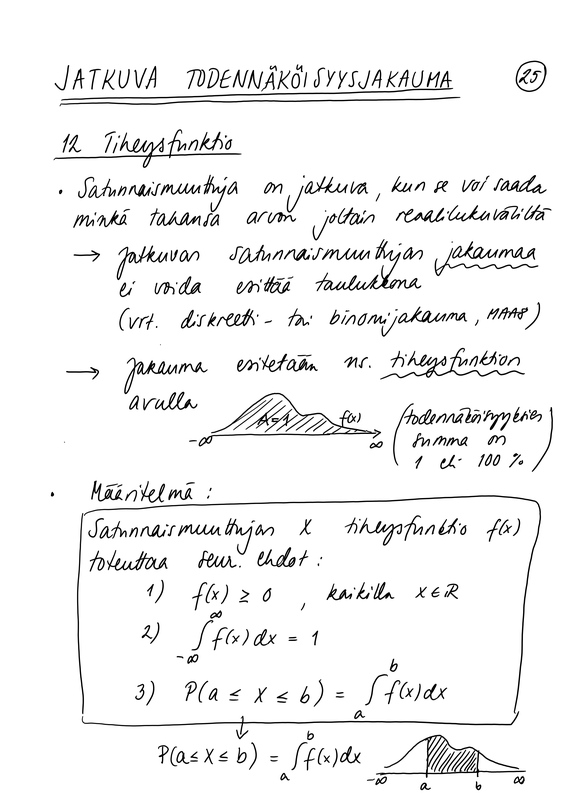 JATKUVA TODENNÄKÖISYYSJAKAUMA 25
12 Tiheysfunktio
• Satunnaismuuttuja on jatkuva, kun se voi saada
minkä tahansa arvon joltain reaalilukuväliltä
→ Jatkuvan satunnaismuuttujan jakaumaa
ei voida esittää taulukkona
(vrt. diskreetti- tai binomijakauma, MAA8)
→ Jakauma esitetään ns. tiheysfunktion
avulla
A=1 f(x)
-∞ ∞
(todennäköisyyksien
summa on
1 eli 100 %)
• Määritelmä:
Satunnaismuuttujan X tiheysfunktio f(x)
toteuttaa seur. ehdot:
1) f(x) ≥ 0, kaikilla x ∈ ℝ
2) ∫_{-∞}^{∞} f(x) dx = 1
3) P(a ≤ X ≤ b) = ∫_{a}^{b} f(x) dx
↓
P(a ≤ X ≤ b) = ∫_{a}^{b} f(x) dx
-∞ a b ∞